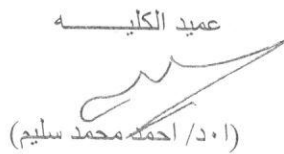 عميد الكليـــــه
(ا٠د/ احمد محمد سليم)